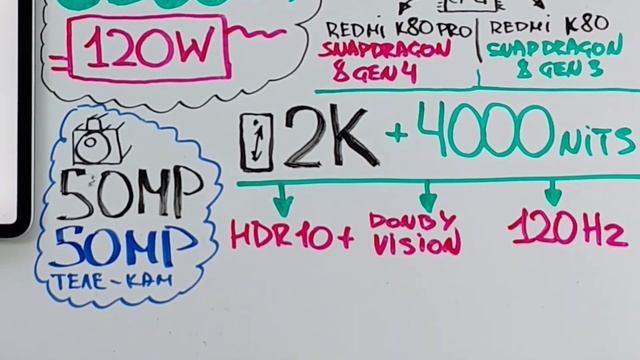 120W
REDMI K80 PRO
SNAPDRAGON
8 GEN 4
REDMI K80
SNAPDRAGON
8 GEN 3
2K + 4000 NiTS
50MP
50MP
ТЕЛЕ-КАМ
HDR10+
DONBY
VISION
120Hz